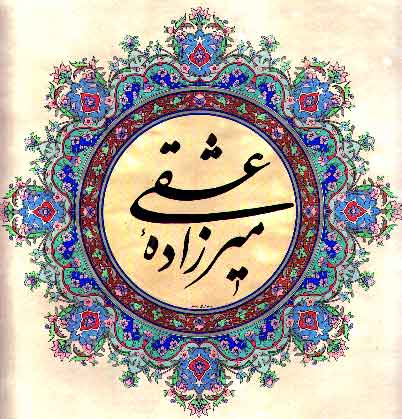 میرزادهٔ
عشقی